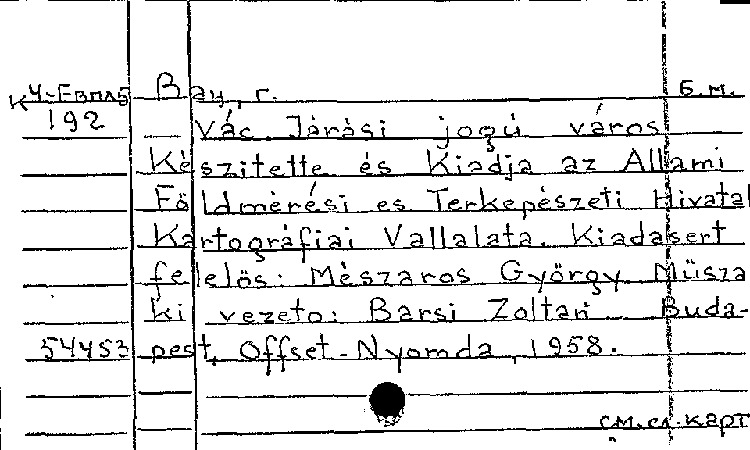 К4-Евпл5 Вац, г. Б.м.
192 Vác Járási jogú város
Készitette és Kiadja az Allami
Földmérési es Terkepészeti Hivatal
Kartográfiai Vallalata. Kiadasert
felelös: Mészaros György Müsza
ki vezeto: Barsi Zoltan Buda-
54453 pest, Offset-Nyomda, 1958.
см. сл. карт